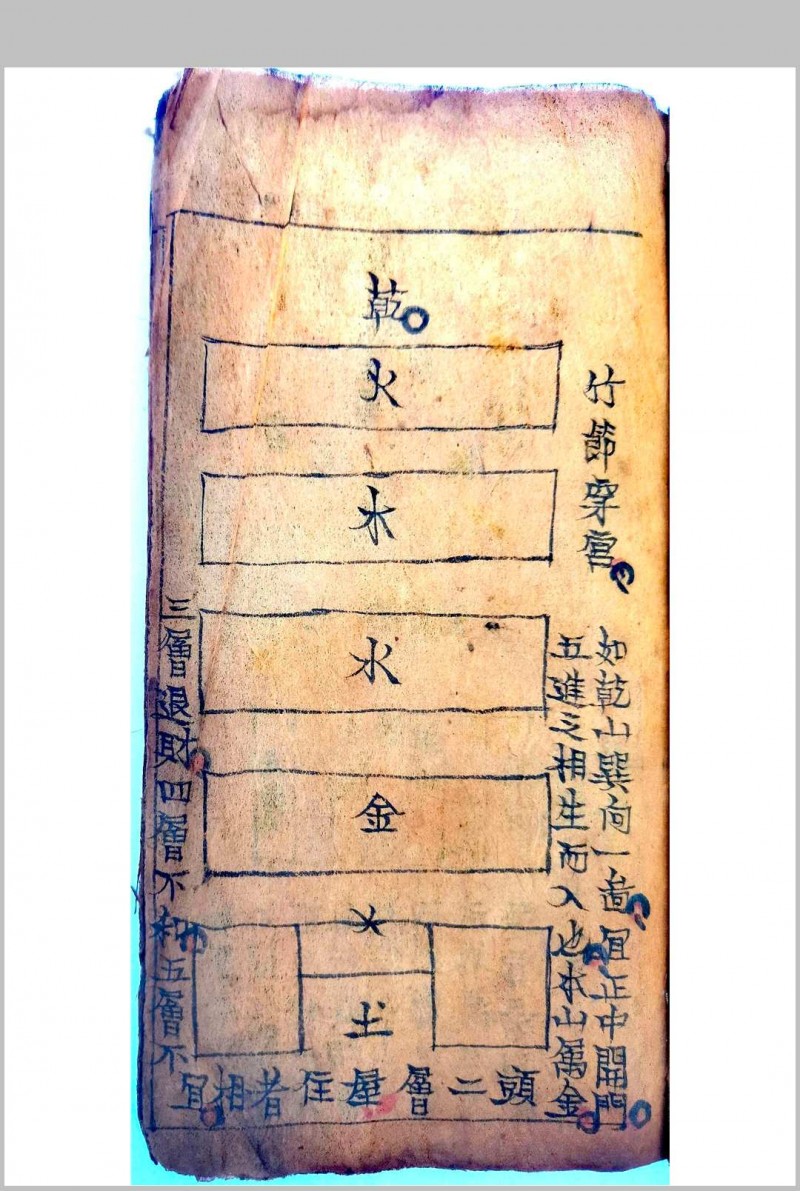 竹節穿宮
如乾山巽向一啚宜正中開門
五進之相生而入也本山属金
乾
火
木
水
金
土
頭二層屋住者相宜
三層退財四層不利五層不